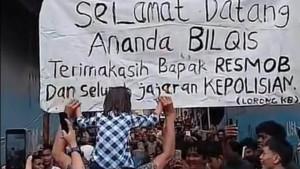 SeLamat Datang
Ananda BILQIS
Terimakasih Bapak RESMOB
Dan seluruh jajaran KEPOLISIAN.
(LORONG KB)